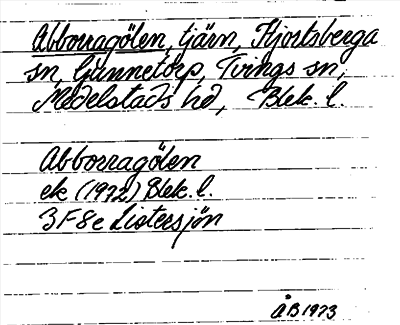 Abborragölen, tjärn, Hjortsberga
sn, Gunnetorp, Tvings sn,
Medelstads hd, Blek. l.
Abborragölen
ek (1972) Blek. l.
3F8e Listersjön
ÅB 1973